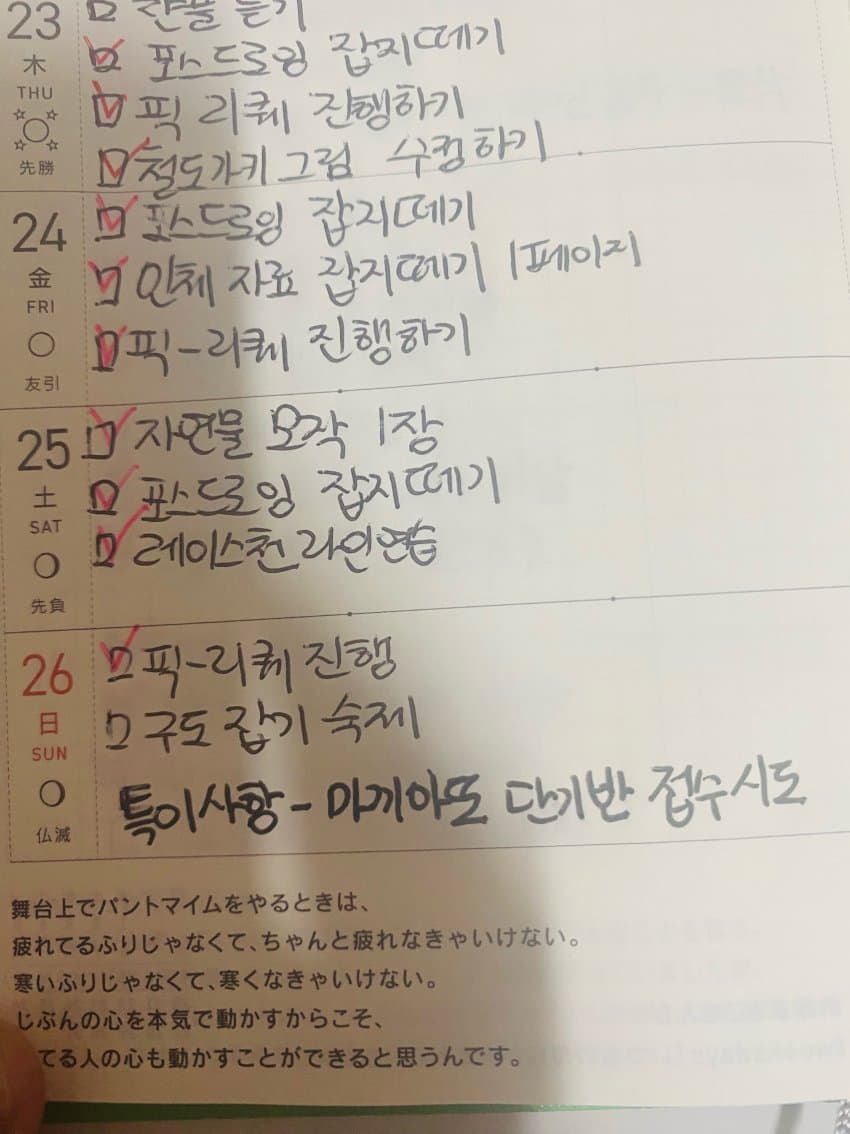 23
木
THU
先勝
포스드로잉 잡지떼기
픽 리퀘 진행하기
철도가키 그림 수정하기
24
金
FRI
友引
포스드로잉 잡지떼기
인체 자료 잡지떼기 1페이지
픽-리퀘 진행하기
25
土
SAT
先負
자연물 모작 1장
포스드로잉 잡지떼기
레이스천 라인연습
26
日
SUN
仏滅
픽-리퀘 진행
구도 잡기 숙제
특이사항- 마끼아또 단기반 접수시도
舞台上でパントマイムをやるときは、
疲れてるふりじゃなくて、ちゃんと疲れなきゃいけない。
寒いふりじゃなくて、寒くなきゃいけない。
じぶんの心を本気で動かすからこそ、
てる人の心も動かすことができると思うんです。